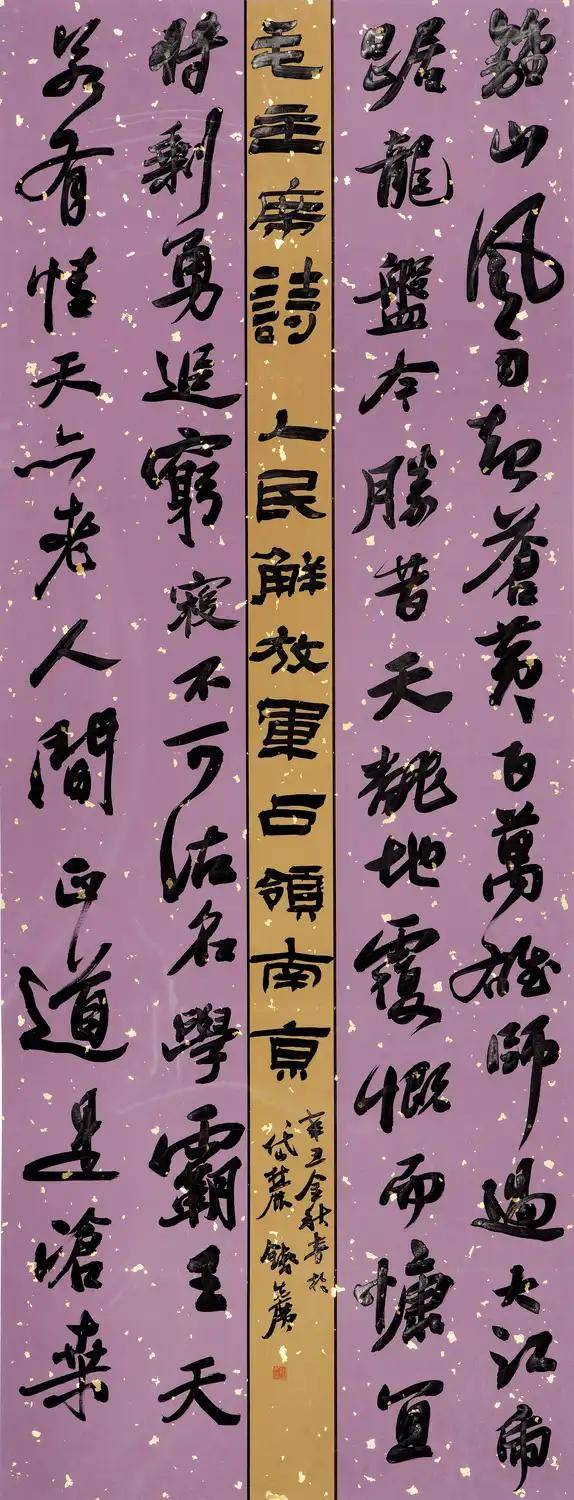 鍾山風雨起蒼黃百萬雄師過大江虎
踞龍盤今勝昔天翻地覆慨而慷宜
毛主席詩 人民解放軍占領南京
辛丑金秋書於
岱麓
將剩勇追窮寇不可沽名學霸王天
若有情天亦老人間正道是滄桑